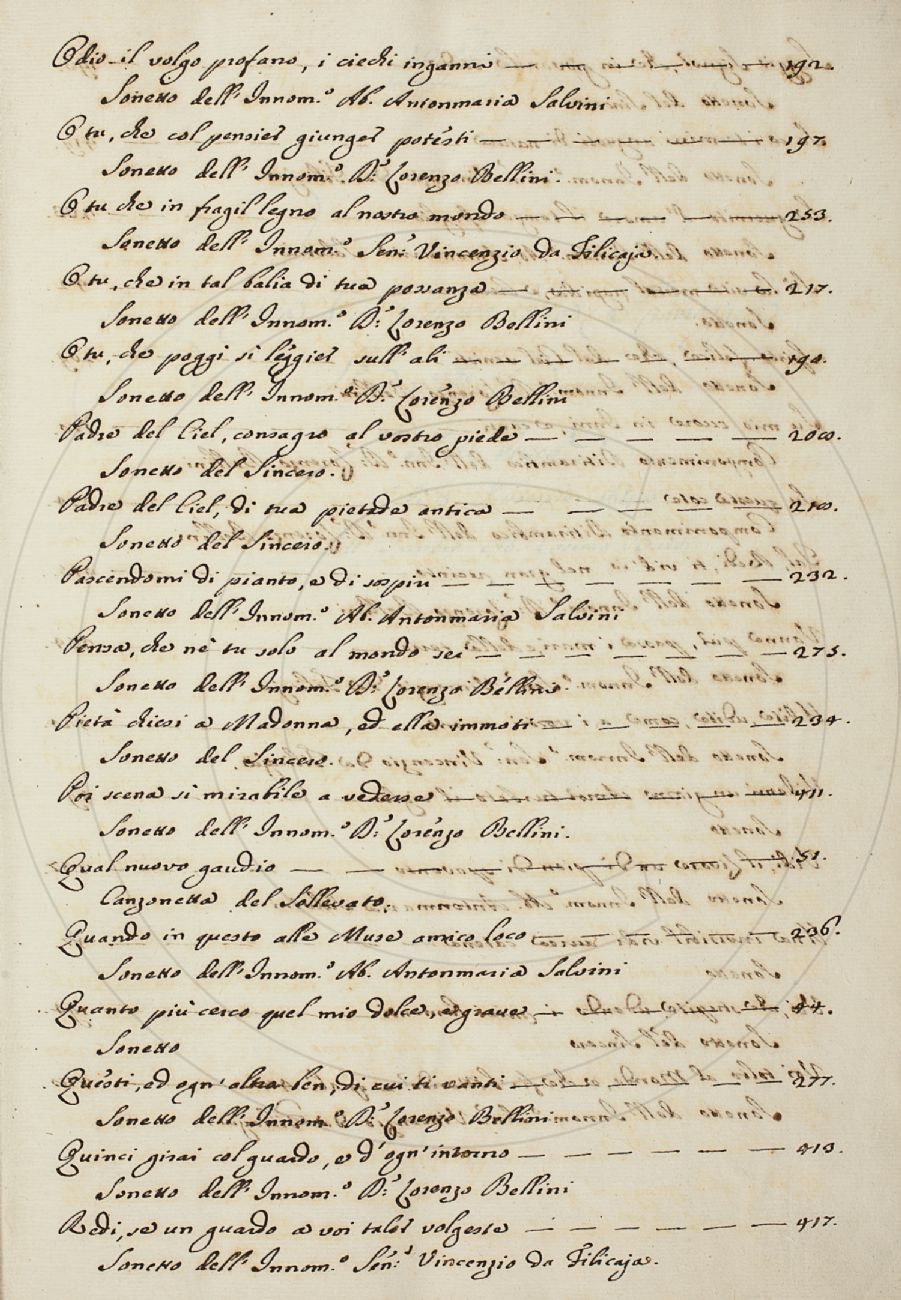 Odio il volgo profano, i ciechi inganni — 192.
Sonetto dell' Innom.º Ab. Antonmaria Salvini
O tu, che col pensier giunger potesti — 197.
Sonetto dell' Innom.º D.r Lorenzo Bellini.
O tu che in fragil legno al nostro mondo — 253.
Sonetto dell' Innom.º Sen.r Vincenzio da Filicaja
O tu, che in tal balia di tua possanza — 217.
Sonetto dell' Innom.º D.r Lorenzo Bellini
O tu, che poggi sì leggier sull' ali — 190.
Sonetto dell' Innom.º D.r Lorenzo Bellini
Padre del Ciel, consagro al vostro piede — 200.
Sonetto del Sincero.
Padre del Ciel, di tua pietade antica — 210.
Sonetto del Sincero.
Pascendomi di pianto, e di sospiri — 232.
Sonetto dell' Innom.º Ab. Antonmaria Salvini
Pensa, che nè tu solo al mondo sei — 275.
Sonetto dell' Innom.º D.r Lorenzo Bellini.
Pietà chiesi a Madonna, ed ella immoti — 234.
Sonetto del Sincero.
Poi scena sì mirabile a vederse — 411.
Sonetto dell' Innom.º D.r Lorenzo Bellini.
Qual nuovo gaudio — 51.
Canzonetta del Sollevato.
Quando in questo alle Muse amico loco — 236.
Sonetto dell' Innom.º Ab. Antonmaria Salvini
Quanto più cerco quel mio dolce e grave — 44.
Sonetto
Questi, ed ogn' altro ben, di cui ti vanti — 277.
Sonetto dell' Innom.º D.r Lorenzo Bellini
Quinci girai col guardo, e d' ogn' intorno — 413.
Sonetto dell' Innom.º D.r Lorenzo Bellini
Redi, se un guardo a voi taler volgeste — 417.
Sonetto dell' Innom.º Sen.r Vincenzio da Filicaja.